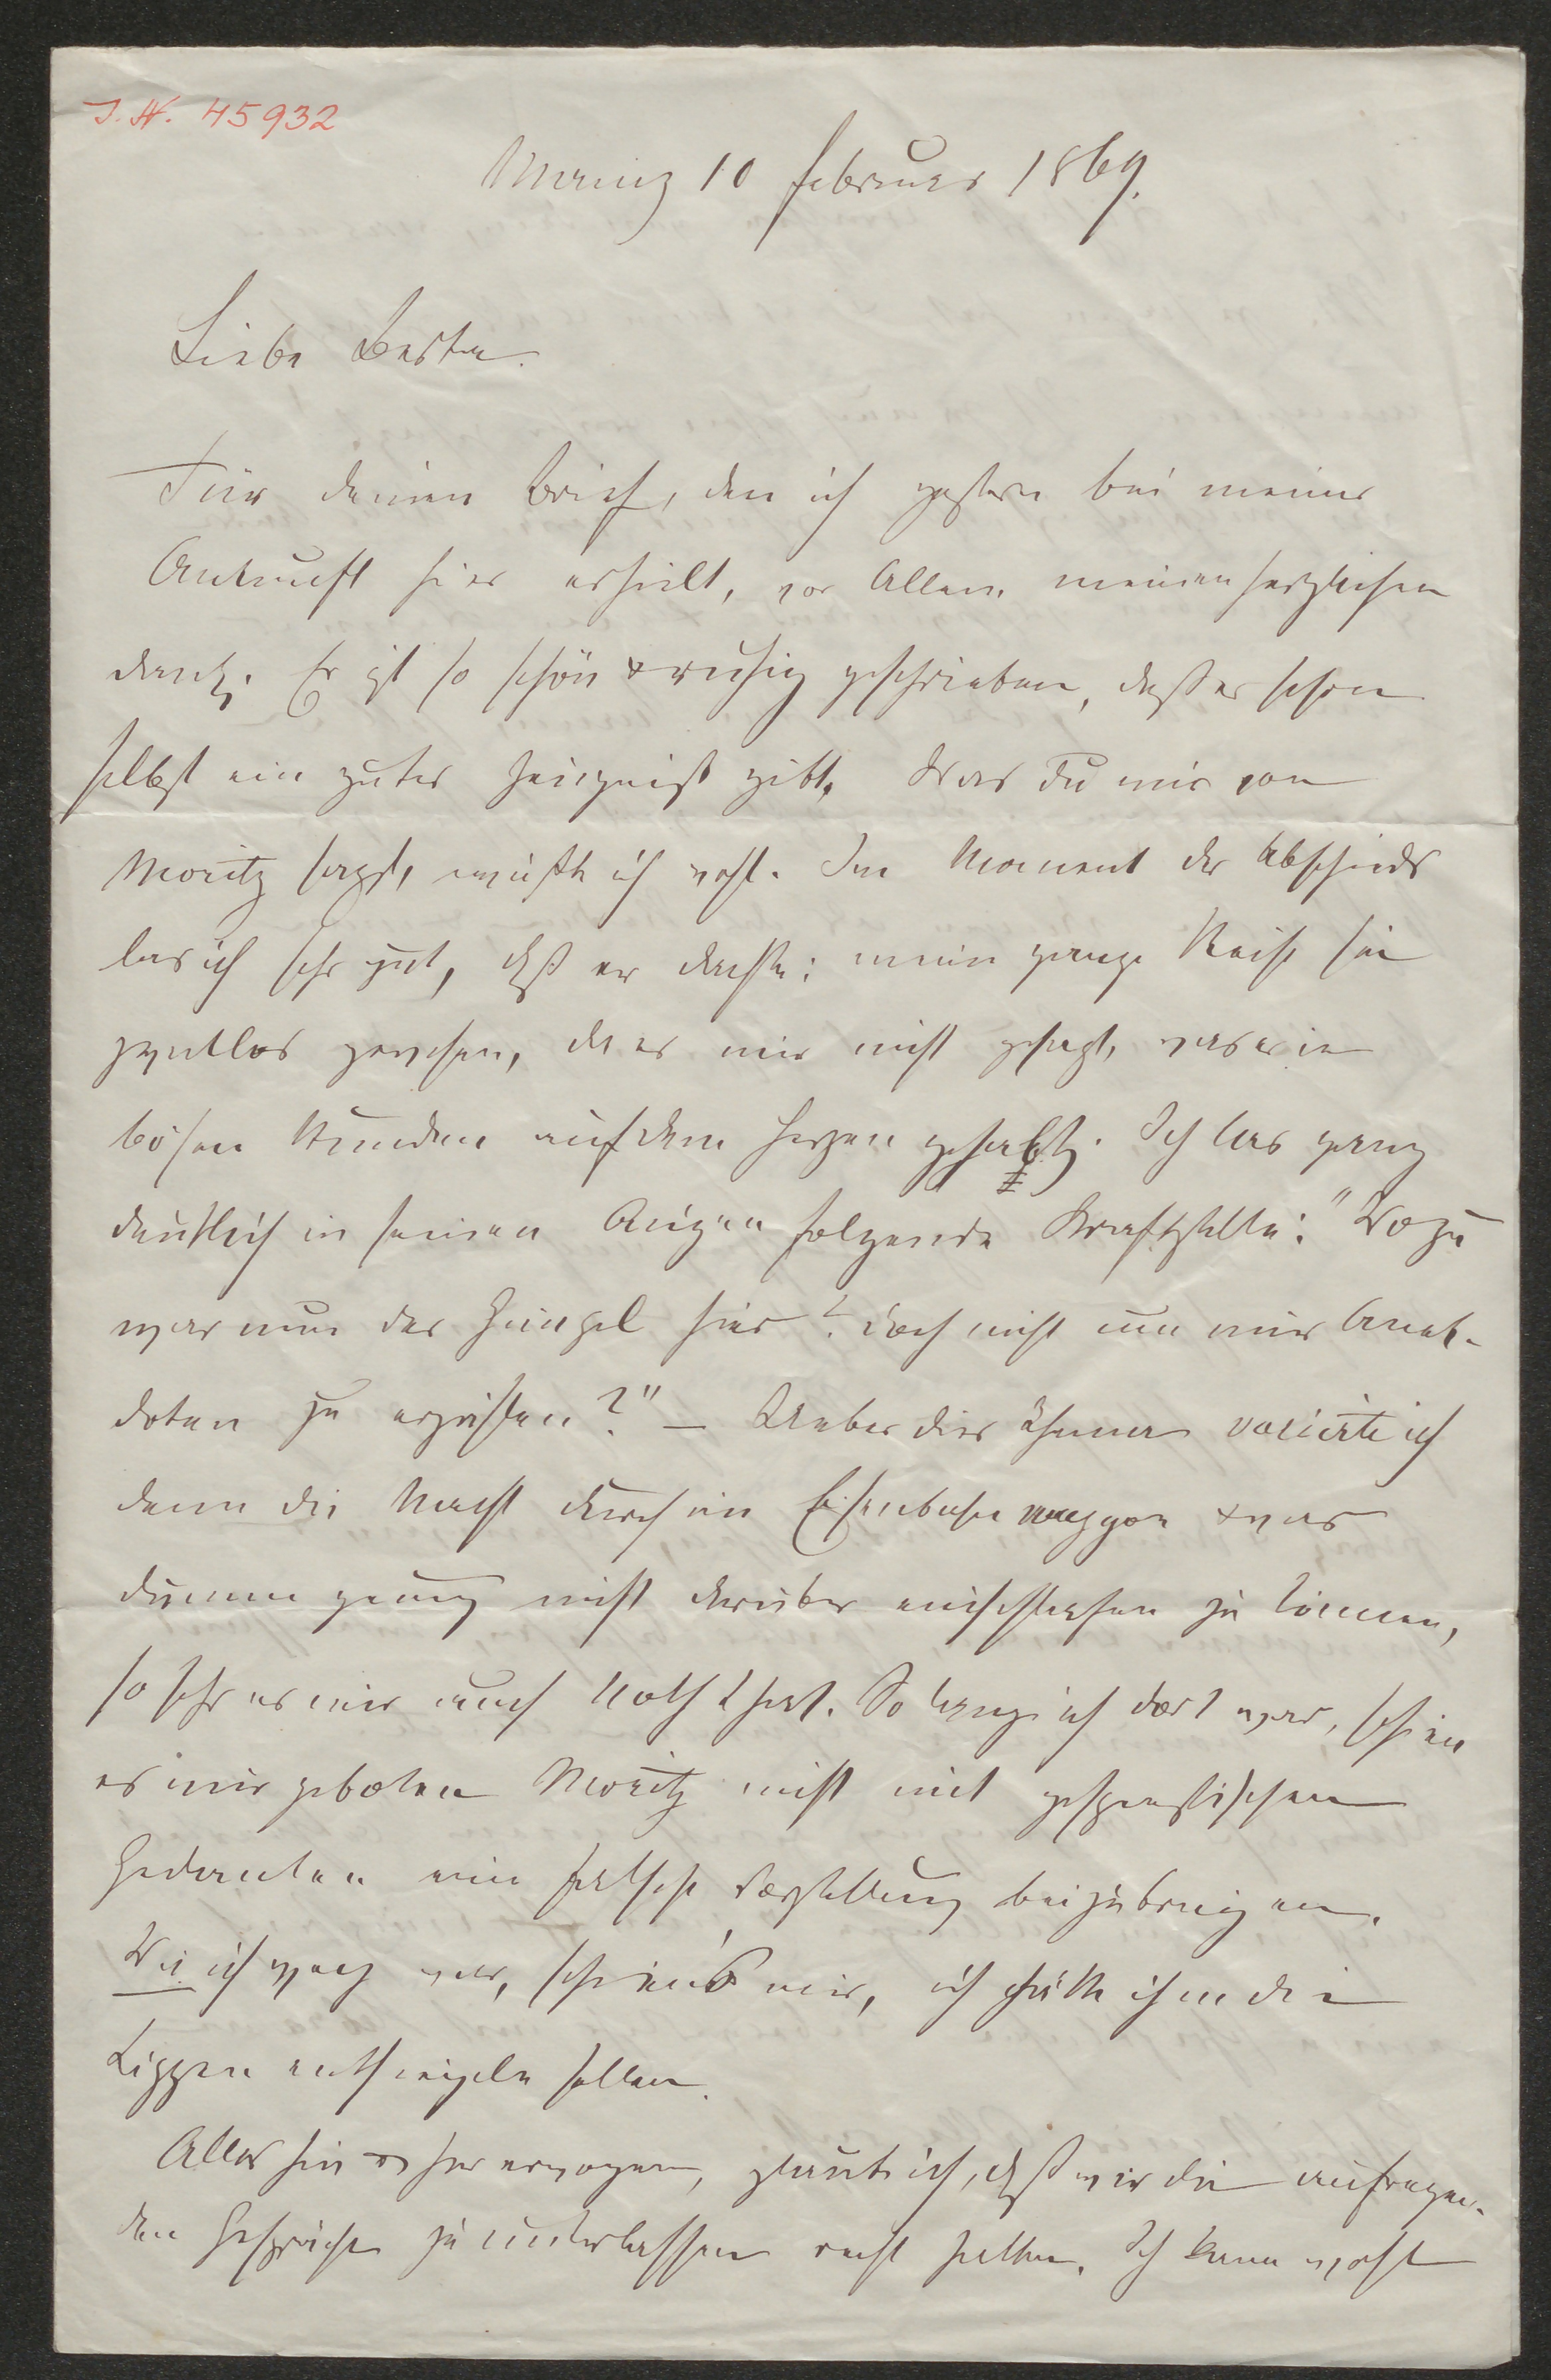 I. N. 45932
Mainz 10 Februar 1869.
Liebe Beste.
Für deinen Brief, den ich gestern bei meiner
Ankunft hier erhielt, vor Allem meinen herzlichen
Dank. Er ist so schön & ruhig geschrieben, daß er schon
selbst ein gutes Zeugniß gibt. Was Du mir von
Moritz sagst, wußte ich wohl. Im Moment des Abschieds
las ich sehr gut, daß er dachte: meine ganze Reise sei
zwecklos gewesen, da er mir nicht gesagt, was er in
bösen Stunden auf dem Herzen gehabt. Ich las ganz
deutlich in seinen Augen folgende Kraftstelle: "Wozu
war nun der hier? doch nicht um mir Anek-
doten zu erzählen?" – Ueber dies Thema variirte ich
dann die Nacht durch im Eisenbahnwaggon & war
dumm genug nicht darüber einschlafen zu können,
so sehr es mir auch Noth that. So lange ich dort war, schien
es mir geboten Moritz nicht mit gespenstischen
Gedanken eine falsche Vorstellung beizubringen.
Wie ich weg war, schien's mir, ich hätte ihm die
Lippen entsiegeln sollen.
Alles hin & her erwogen, glaube ich, daß wir die aufregen-
den Gespräche zu unterlassen recht hatten. Ich kann wohl